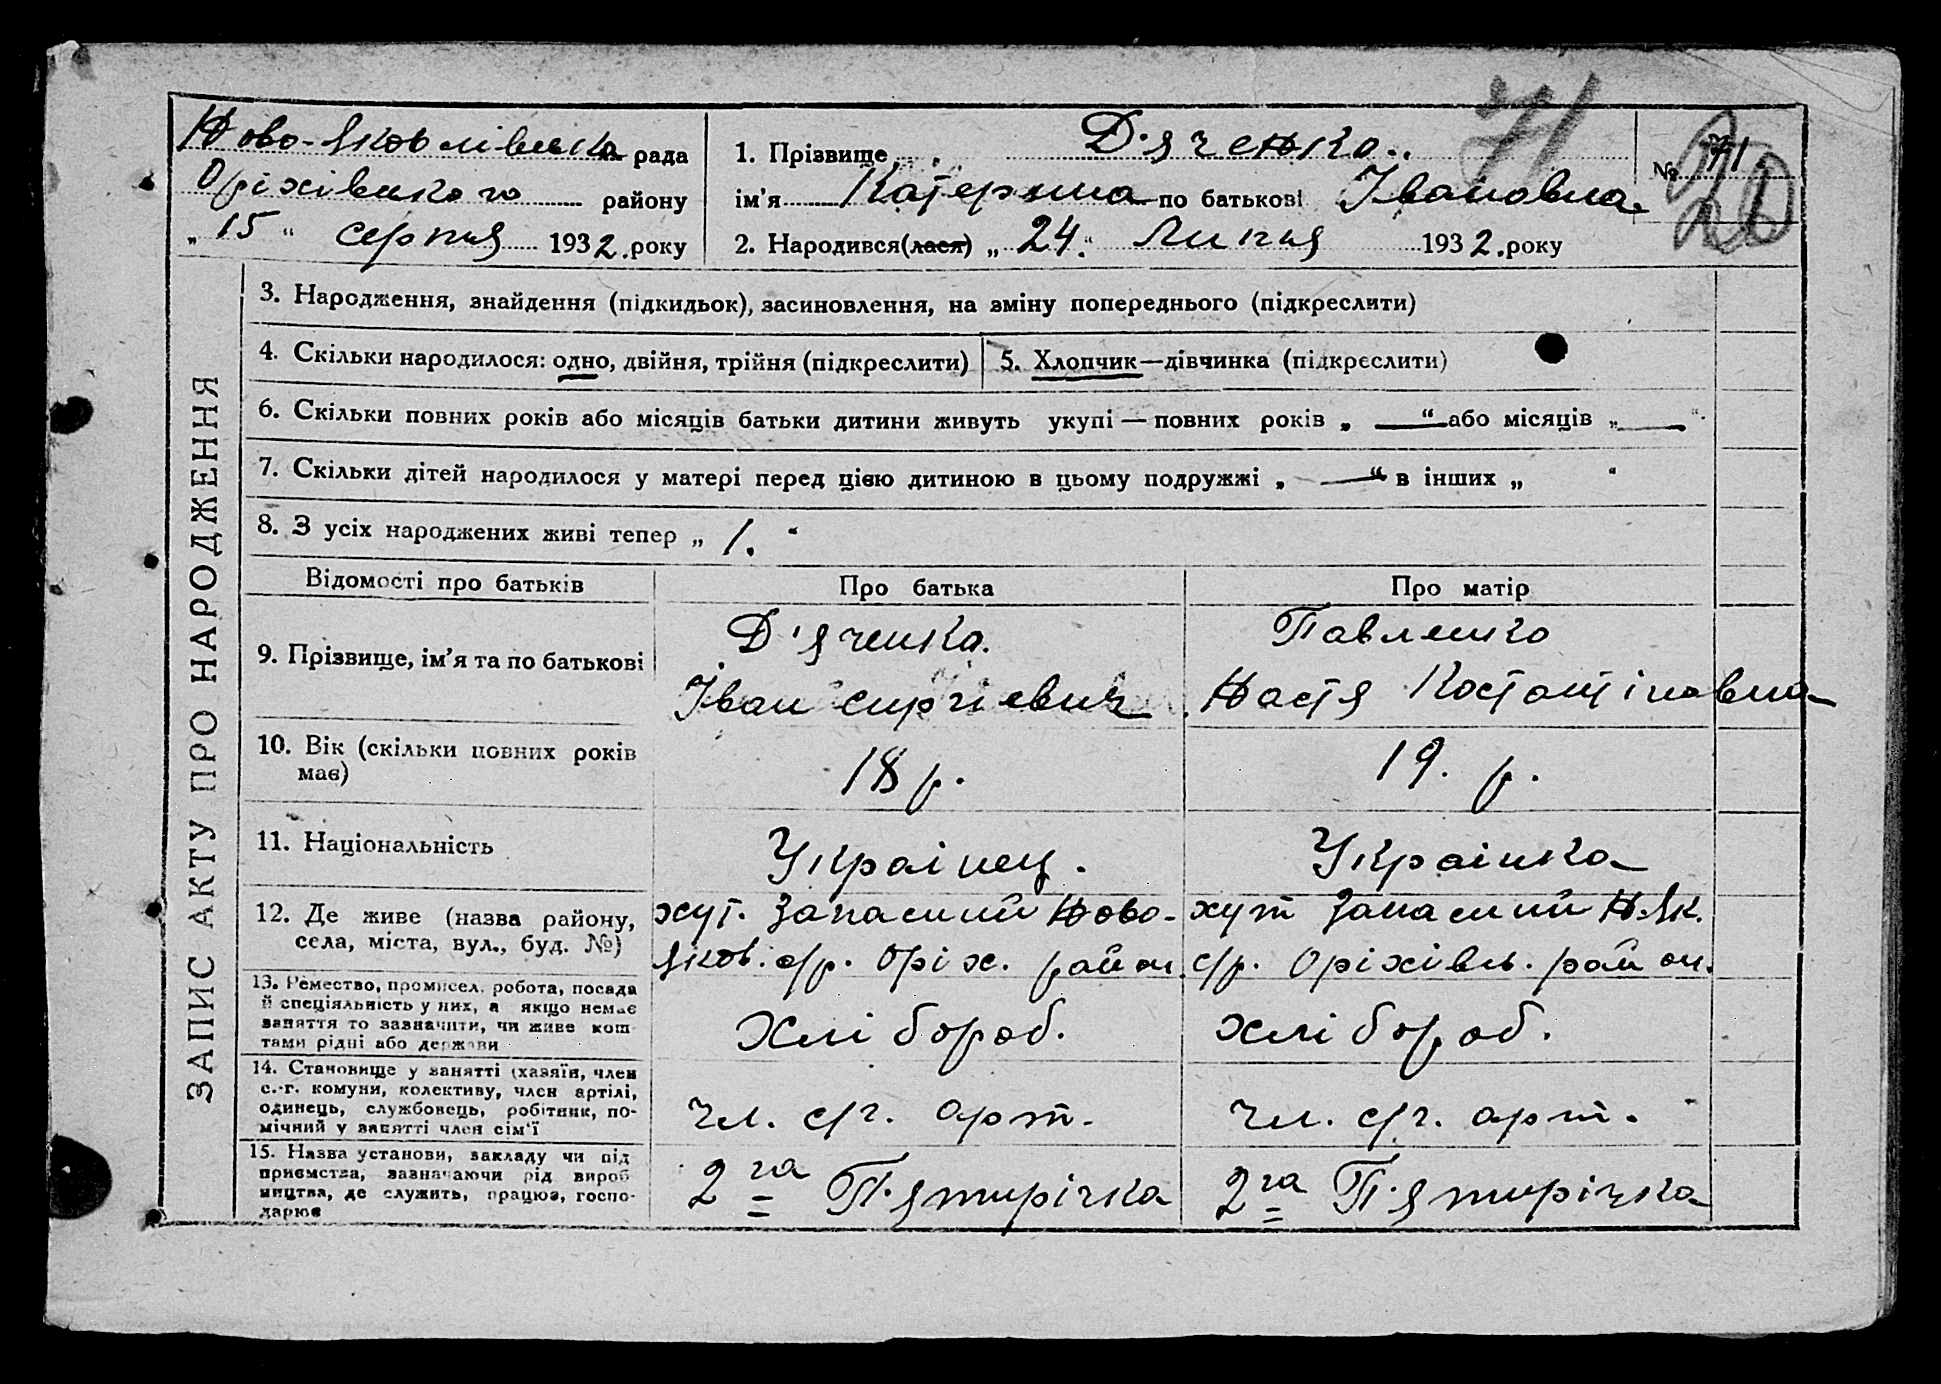 Ново-Яковлівська рада
Оріхівського району
„ 15 “ серпня 1932. року
1. Прізвище Д'яченко.
ім'я Катерина по батькові Івановна.
2. Народився(лася) „ 24. “ Липня 1932. року
71
№ 71
20
ЗАПИС АКТУ ПРО НАРОДЖЕННЯ
3. Народження, знайдення (підкидьок), засиновлення, на зміну попереднього (підкреслити)
4. Скільки народилося: одно, двійня, трійня (підкреслити)
5. Хлопчик—дівчинка (підкреслити)
6. Скільки повних років або місяців батьки дитини живуть укупі — повних років „ — “ або місяців „ — “
7. Скільки дітей народилося у матері перед цією дитиною в цьому подружжі „ — “ в інших „ “
8. З усіх народжених живі тепер „ 1. “
Відомості про батьків
Про батька
Про матір
9. Прізвище, ім'я та по батькові
Д'яченко.
Іван Сиргіевич
Павленко
Настя Костантіновна
10. Вік (скільки повних років
має)
18 р.
19. р.
11. Національність
Украінец.
Украінка
12. Де живе (назва району,
села, міста, вул., буд. №)
хут. Запасний Ново-
Яков. с/р. Оріх. район.
хут Запасний Н.Як.
с/р. Оріхівсь. район.
13. Ремество, промисел, робота, посада
й спеціяльність у них, а якщо немає
заняття то зазначити, чи живе кош
тами рідні або держави
Хлібороб.
хлібороб.
14. Становище у занятті (хазяїн, член
с.-г. комуни, колективу, член артілі,
одинець, службовець, робітник, по-
мічний у занятті член сім'ї
чл. с/г. арт.
чл. с/г. арт.
15. Назва установи, закладу чи під
приємства, зазначаючи рід вироб
ництва, де служить, працює, госпо-
дарює
2га П'ятирічка
2га П'ятирічка